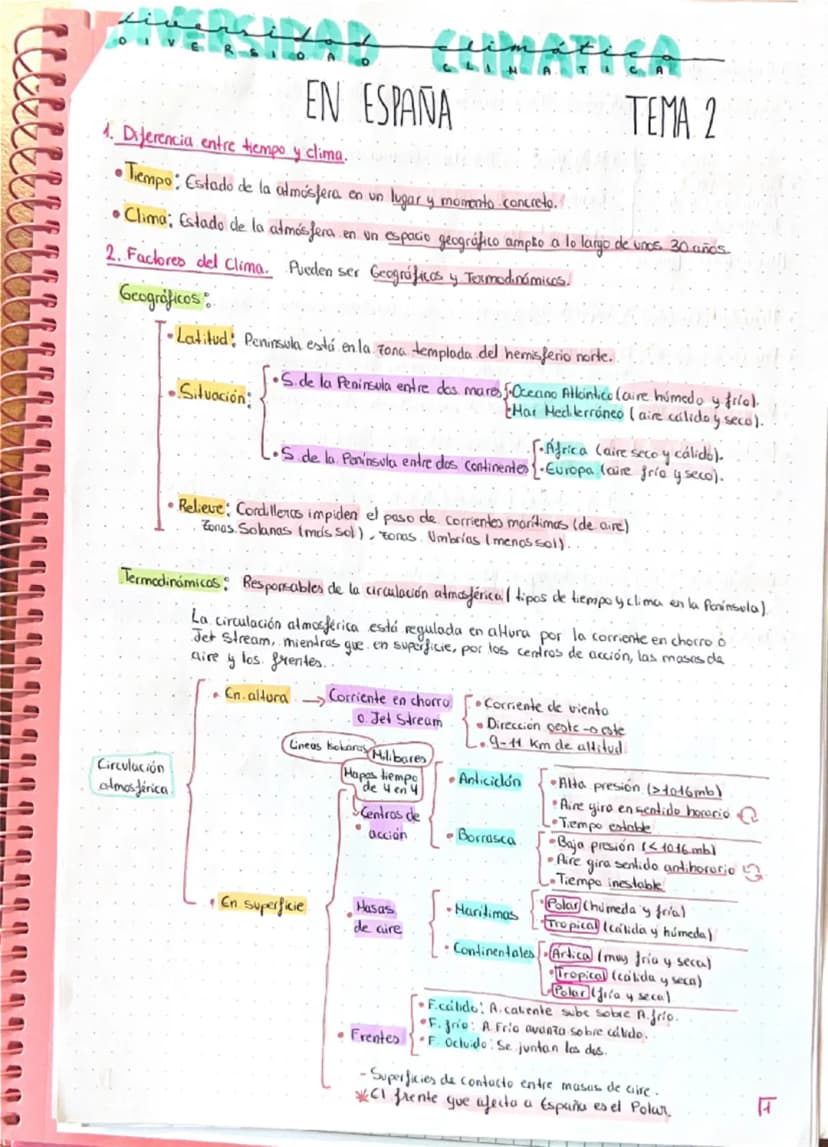 diversidad climática
DIVERSIDAD CLIMATICA
EN ESPAÑA TEMA 2
1. Diferencia entre tiempo y clima.
• Tiempo: Estado de la atmósfera en un lugar y momento concreto.
• Clima: Estado de la atmósfera en un espacio geográfico amplio a lo largo de unos 30 años
2. Factores del Clima. Pueden ser Geográficos y Termodinámicos.
Geográficos:
• Latitud: Península está en la zona templada del hemisferio norte.
• Situación:
• S. de la Península entre dos mares
• Oceano Atlántico (aire húmedo y frío).
• Mar Mediterráneo (aire cálido y seco).
• S. de la Península entre dos continentes
• África (aire seco y cálido).
• Europa (aire frío y seco).
• Relieve: Cordilleras impiden el paso de corrientes marítimas (de aire)
Zonas Solanas (más sol), zonas Umbrías (menos sol).
Termodinámicos: Responsables de la circulación atmosférica (tipos de tiempo y clima en la Península).
La circulación atmosférica está regulada en altura por la corriente en chorro o
Jet Stream, mientras que en superficie, por los centros de acción, las masas de
aire y los frentes..
Circulación
atmosférica
• En altura → Corriente en chorro
o Jet Stream
• Corriente de viento
• Dirección oeste-oeste
• 9-11 Km de altitud
• En superficie
Líneas Isobaras
Milibares
Mapas tiempo
de 4 en 4
• Centros de
acción
• Anticiclón
• Alta presión (>1016mb)
• Aire gira en sentido horario
• Tiempo estable
• Borrasca
• Baja presión (<1016mb)
• Aire gira sentido antihorario
• Tiempo inestable
• Masas
de aire
• Marítimas
• Polar (húmeda y fría)
• Tropical (cálida y húmeda)
• Continentales
• Ártica (muy fría y seca)
• Tropical (cálida y seca)
• Polar (fría y seca)
• Frentes
• F. cálido: A. caliente sube sobre A. frío.
• F. frío: A. Frío avanza sobre cálido.
• F. Ocluido: Se juntan los dos.
- Superficies de contacto entre masas de aire.
* El frente que afecta a España es el Polar.
1